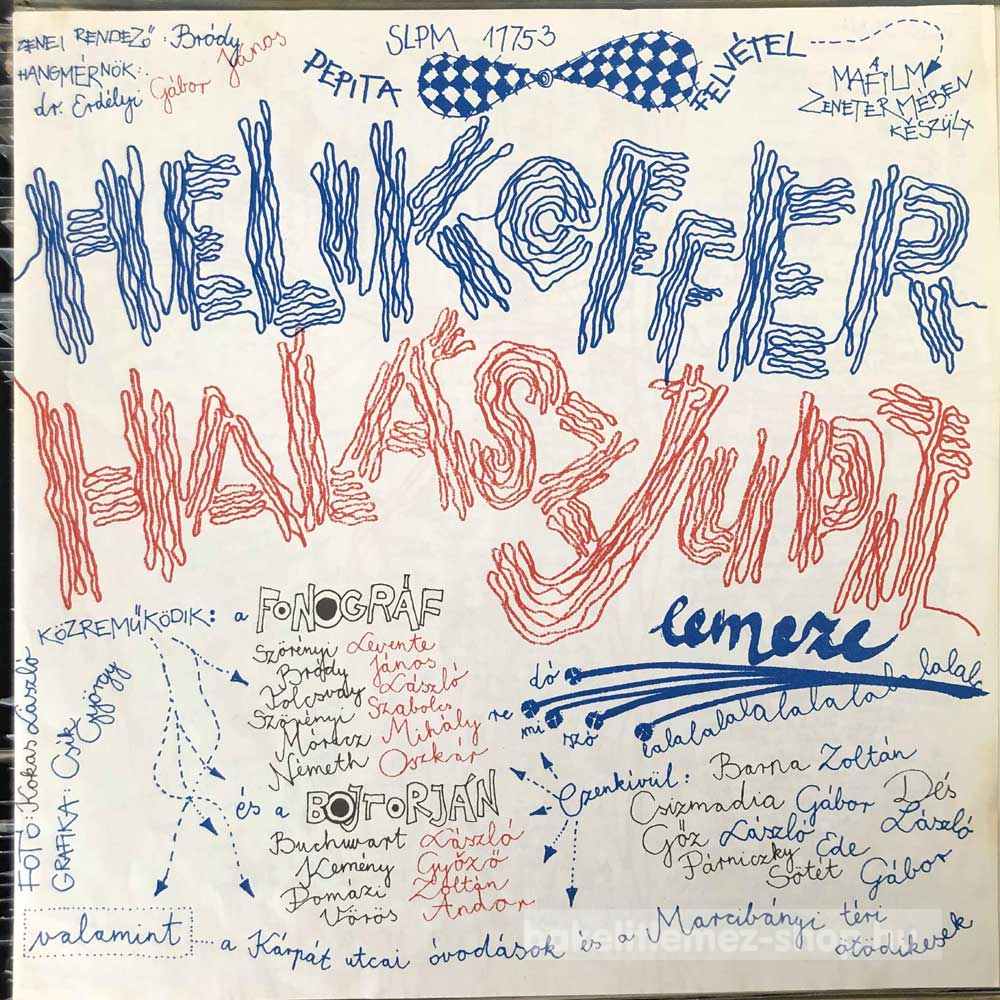 ZENEI RENDEZŐ: Bródy János
HANGMÉRNÖK:
dr. Erdélyi Gábor
SLPM 17753
PEPITA FELVÉTEL
A MAFILM
ZENETERMÉBEN
KÉSZÜLT
HELIKOFFER
HALÁSZ JUDIT
lemeze
KÖZREMŰKÖDIK: a FONOGRÁF
Szörényi Levente
Bródy János
Tolcsvay László
Szörényi Szabolcs
Móricz Mihály
Németh Oszkár
és a BOJTORJÁN
Buchwart László
Kemény Győző
Pomázi Zoltán
Vörös Andor
dó
re
mi
szó
lalalalalalalalalalalalala
Ezenkívül: Barna Zoltán
Csizmadia Gábor Dés László
Gőz László
Párniczky Ede
Sötét Gábor
valamint a Kárpát utcai óvodások és a Marcibányi téri ötödikesek
FOTÓ: Kokas László
GRAFIKA: Csík György
bakelitlemez-shop.hu